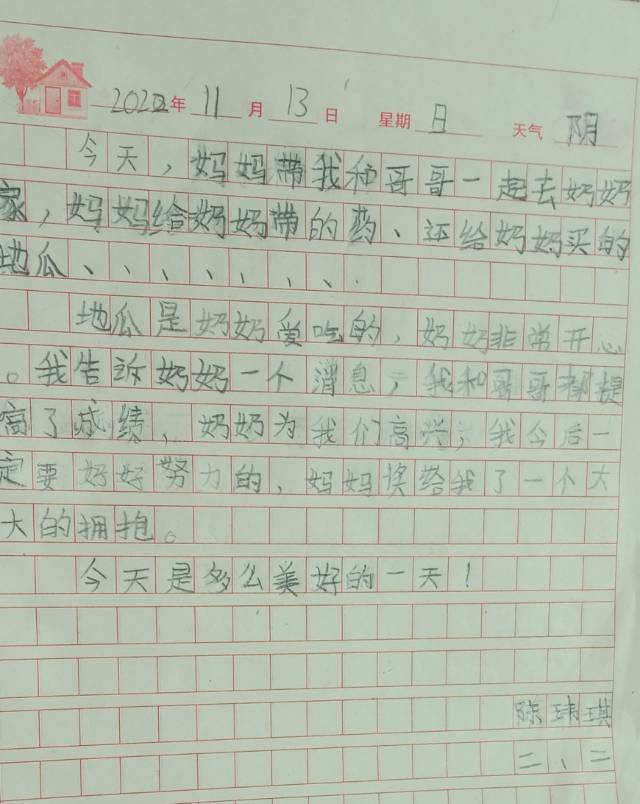 2022年 11 月 13 日 星期 日 天气 阴
今天，妈妈带我和哥哥一起去奶奶
家，妈妈给奶奶带的药、还给奶奶买的
地瓜、、、、、、、、
地瓜是奶奶爱吃的，奶奶非常开心
。我告诉奶奶一个消息，我和哥哥都提
高了成绩，奶奶为我们高兴，我今后一
定要好好努力的，妈妈奖给我了一个大
大的拥抱。
今天是多么美好的一天！
陈玮琪
二、二